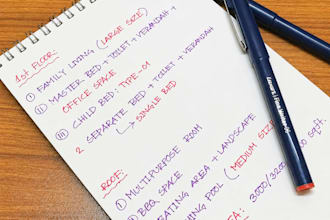 1st FLOOR:
① FAMILY LIVING (LARGE SIZE)
ⓘⓘ MASTER BED + TOILET + VERANDAH +
OFFICE SPACE
ⓘⓘⓘ CHILD BED TYPE-01
2 SEPARATE BED + TOILET + VERANDAH
↳ SINGLE BED
ROOF:
① MULTIPURPOSE ROOM
① BBQ SPACE
SEATING AREA + LANDSCAPE
POOL (MEDIUM SIZE)
3500/3200 sqft.